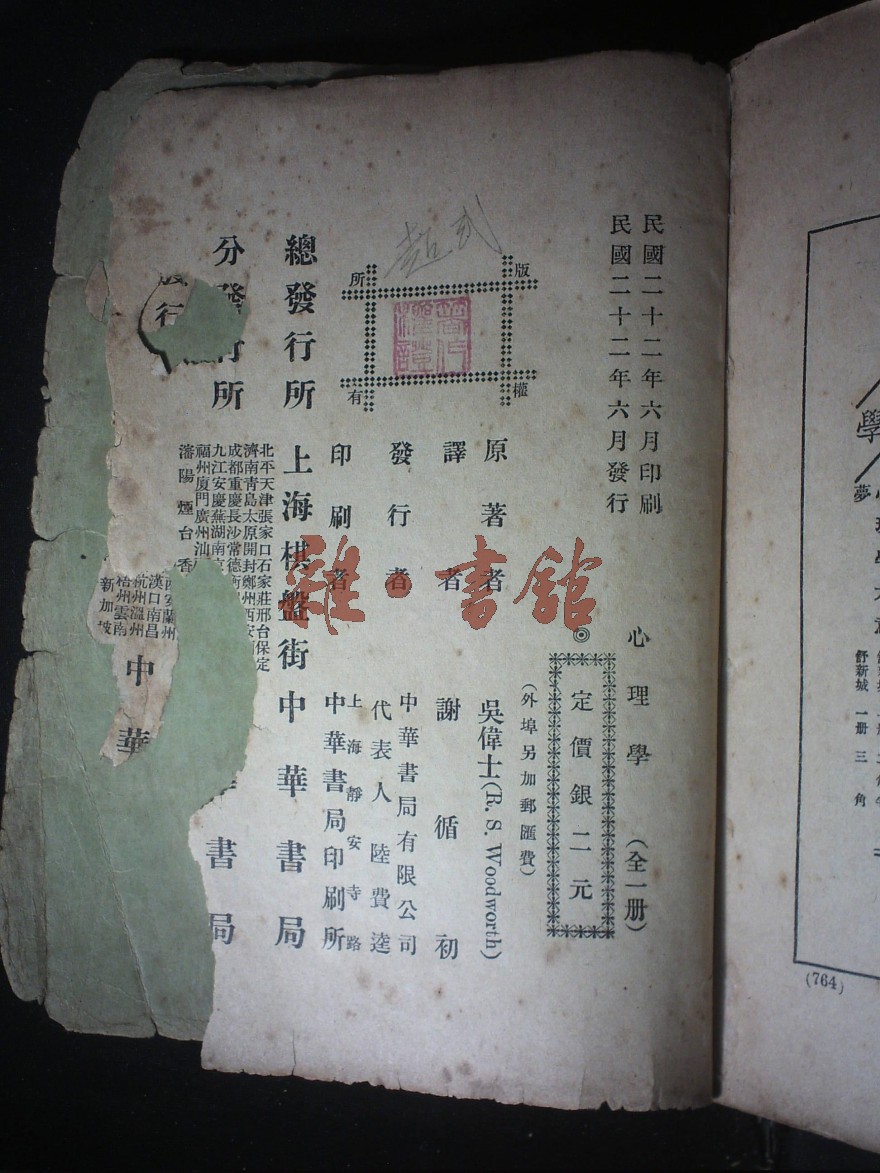 民國二十二年六月印刷
民國二十二年六月發行
心理學（全一册）
◎定價銀二元
（外埠另加郵匯費）
原著者 吳偉士(R. S. Woodworth)
譯者 謝循初
發行者 中華書局有限公司
代表人 陸費逵
印刷者 上海靜安寺路
中華書局印刷所
版權
所有
總發行所 上海棋盤街中華書局
分發行所
北平天津張家口石家莊邢台保定
濟南青島太原開封鄭州西安
成都重慶長沙常德
九江安慶蕪湖南京
福州廈門廣州汕
瀋陽煙台香
蘭州
漢口南昌
杭州溫州
梧州雲南
新加坡
中華書局
中華
雜·書館
學
夢
舒新城 一册 三角
(764)